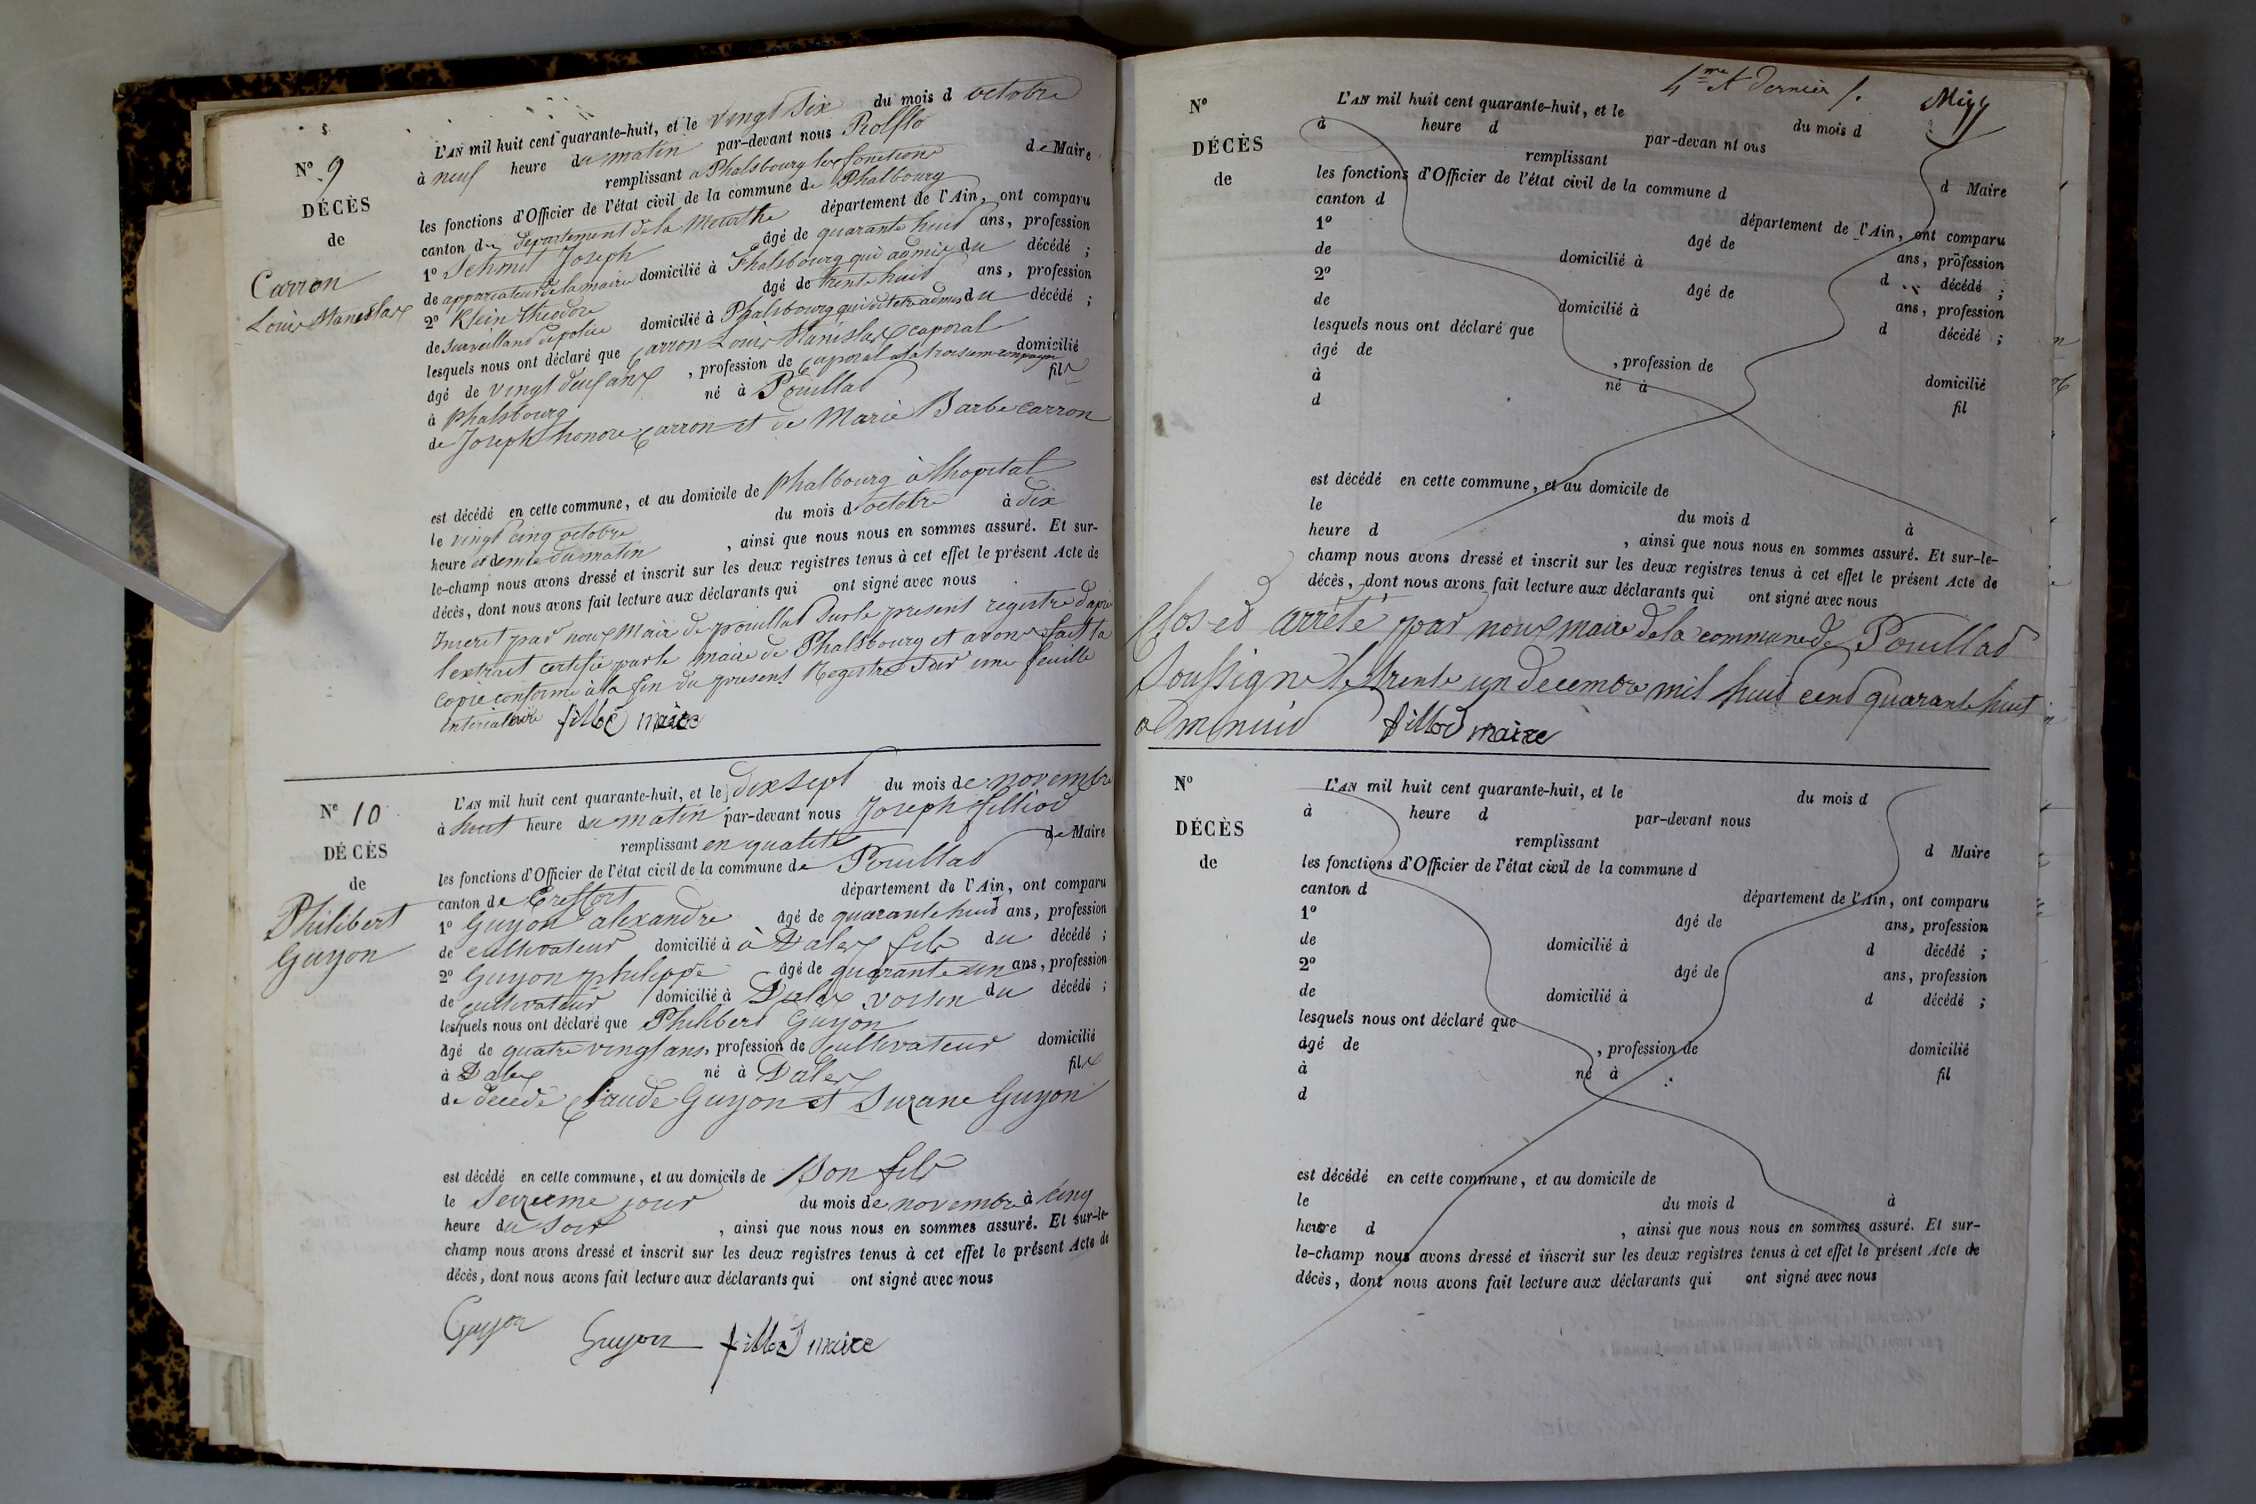 N° 9
DÉCÈS
de
Carron
Louis Stanislas
L'AN mil huit cent quarante-huit, et le vingt six du mois d octobre
à neuf heure du matin par-devant nous
remplissant a Phalsbourg les fonctions de Maire
les fonctions d'Officier de l'état civil de la commune de Phalbourg
canton de département de la Meurthe département de l'Ain, ont comparu
1° Schmit Joseph âgé de quarante huit ans, profession
de appariateur de la mairie domicilié à Phalsbourg qui admis du décédé ;
2° Klein théodore âgé de trente huit ans, profession
de Surveilland de police domicilié à Phalsbourg qui dit etre admis du décédé ;
lesquels nous ont déclaré que Carron Louis Stanislas caporal
âgé de vingt deuf ans , profession de caporal domicilié
à Phalsbourg né à Pouillat fils
de Joseph honore Carron et de Marie Barbe carron
est décédé en cette commune, et au domicile de phalbourg à lhopital
le vingt cinq octobre du mois d octobre à dix
heure et demie du matin , ainsi que nous nous en sommes assuré. Et sur-
le-champ nous avons dressé et inscrit sur les deux registres tenus à cet effet le présent Acte de
décès, dont nous avons fait lecture aux déclarants qui ont signé avec nous
Inscrit par nous Maire de pouillat Sur le present registre dapre
l'extrait certifie par le maire de Phalsbourg et avons fait la
Copie conforme à la fin du present Registre Sur une feuille
fillod maire
N° 10
DÉCÈS
de
Philibert
Guyon
L'AN mil huit cent quarante-huit, et le dix sept du mois de novembre
à huit heure du matin par-devant nous Joseph filliod
remplissant en qualité de Maire
les fonctions d'Officier de l'état civil de la commune de Pouillat
canton de Treffort département de l'Ain, ont comparu
1° Guyon alexandre âgé de quarante huit ans, profession
de cultivateur domicilié à à Dalex fils du décédé ;
2° Guyon philippe âgé de quarante un ans, profession
de cultivateur domicilié à Dalex voisin du décédé ;
lesquels nous ont déclaré que Philibert Guyon
âgé de quatre vingt ans, profession de cultivateur domicilié
à Dalex né à Dalex fils
de decede Claude Guyon et Suzane Guyon
est décédé en cette commune, et au domicile de Son fils
le Seizieme jour du mois de novembre à cinq
heure du Soir , ainsi que nous nous en sommes assuré. Et sur-le-
champ nous avons dressé et inscrit sur les deux registres tenus à cet effet le présent Acte de
décès, dont nous avons fait lecture aux déclarants qui ont signé avec nous
Guyon Guyon fillod maire
4me et dernier f.
N°
DÉCÈS
de
L'AN mil huit cent quarante-huit, et le du mois d
à heure d par-devan nt ous
remplissant d Maire
les fonctions d'Officier de l'état civil de la commune d
canton d département de l'Ain, ont comparu
1° âgé de ans, profession
de domicilié à d décédé ;
2° âgé de ans, profession
de domicilié à d décédé ;
lesquels nous ont déclaré que
âgé de , profession de domicilié
à né à fil
d
est décédé en cette commune, et au domicile de
le du mois d à
heure d , ainsi que nous nous en sommes assuré. Et sur-le-
champ nous avons dressé et inscrit sur les deux registres tenus à cet effet le présent Acte de
décès, dont nous avons fait lecture aux déclarants qui ont signé avec nous
Clos et arrêté par nous maire de la commune de Pouillat
Soussigne le trente un decembre mil huit cent quarante huit
a minuit fillod maire
N°
DÉCÈS
de
L'AN mil huit cent quarante-huit, et le du mois d
à heure d par-devant nous
remplissant d Maire
les fonctions d'Officier de l'état civil de la commune d
canton d département de l'Ain, ont comparu
1° âgé de ans, profession
de domicilié à d décédé ;
2° âgé de ans, profession
de domicilié à d décédé ;
lesquels nous ont déclaré que
âgé de , profession de domicilié
à né à fil
d
est décédé en cette commune, et au domicile de
le du mois d à
heure d , ainsi que nous nous en sommes assuré. Et sur-
le-champ nous avons dressé et inscrit sur les deux registres tenus à cet effet le présent Acte de
décès, dont nous avons fait lecture aux déclarants qui ont signé avec nous